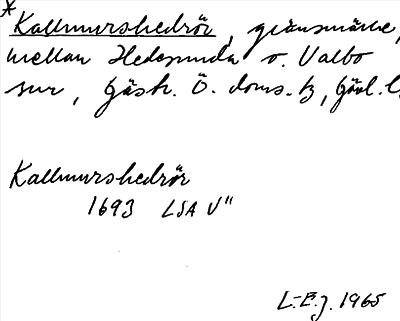 *Kallmurshedrör, gränsmärke,
mellan Hedesunda o. Valbo
snr, Gästr. Ö. doms. tg, Gävl. l.
Kallmurshedrör
1693 LSA V"
L.-E. J. 1965